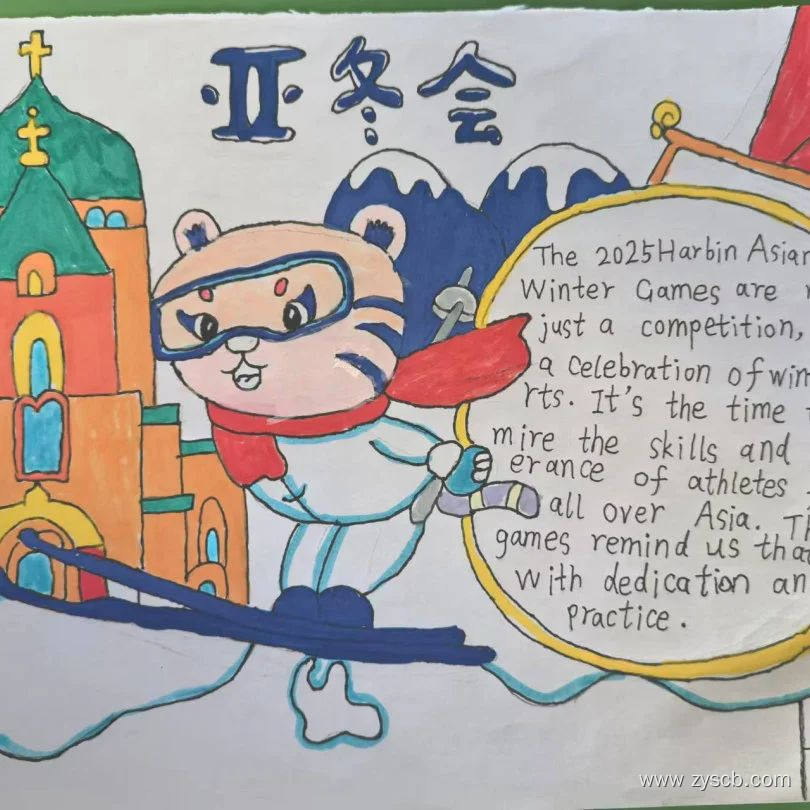 亚冬会
The 2025 Harbin Asian
Winter Games are
just a competition,
a celebration of
rts. It's the time
mire the skills and
erance of athletes
all over Asia.
games remind us that
with dedication an
practice.
www.zyscb.com